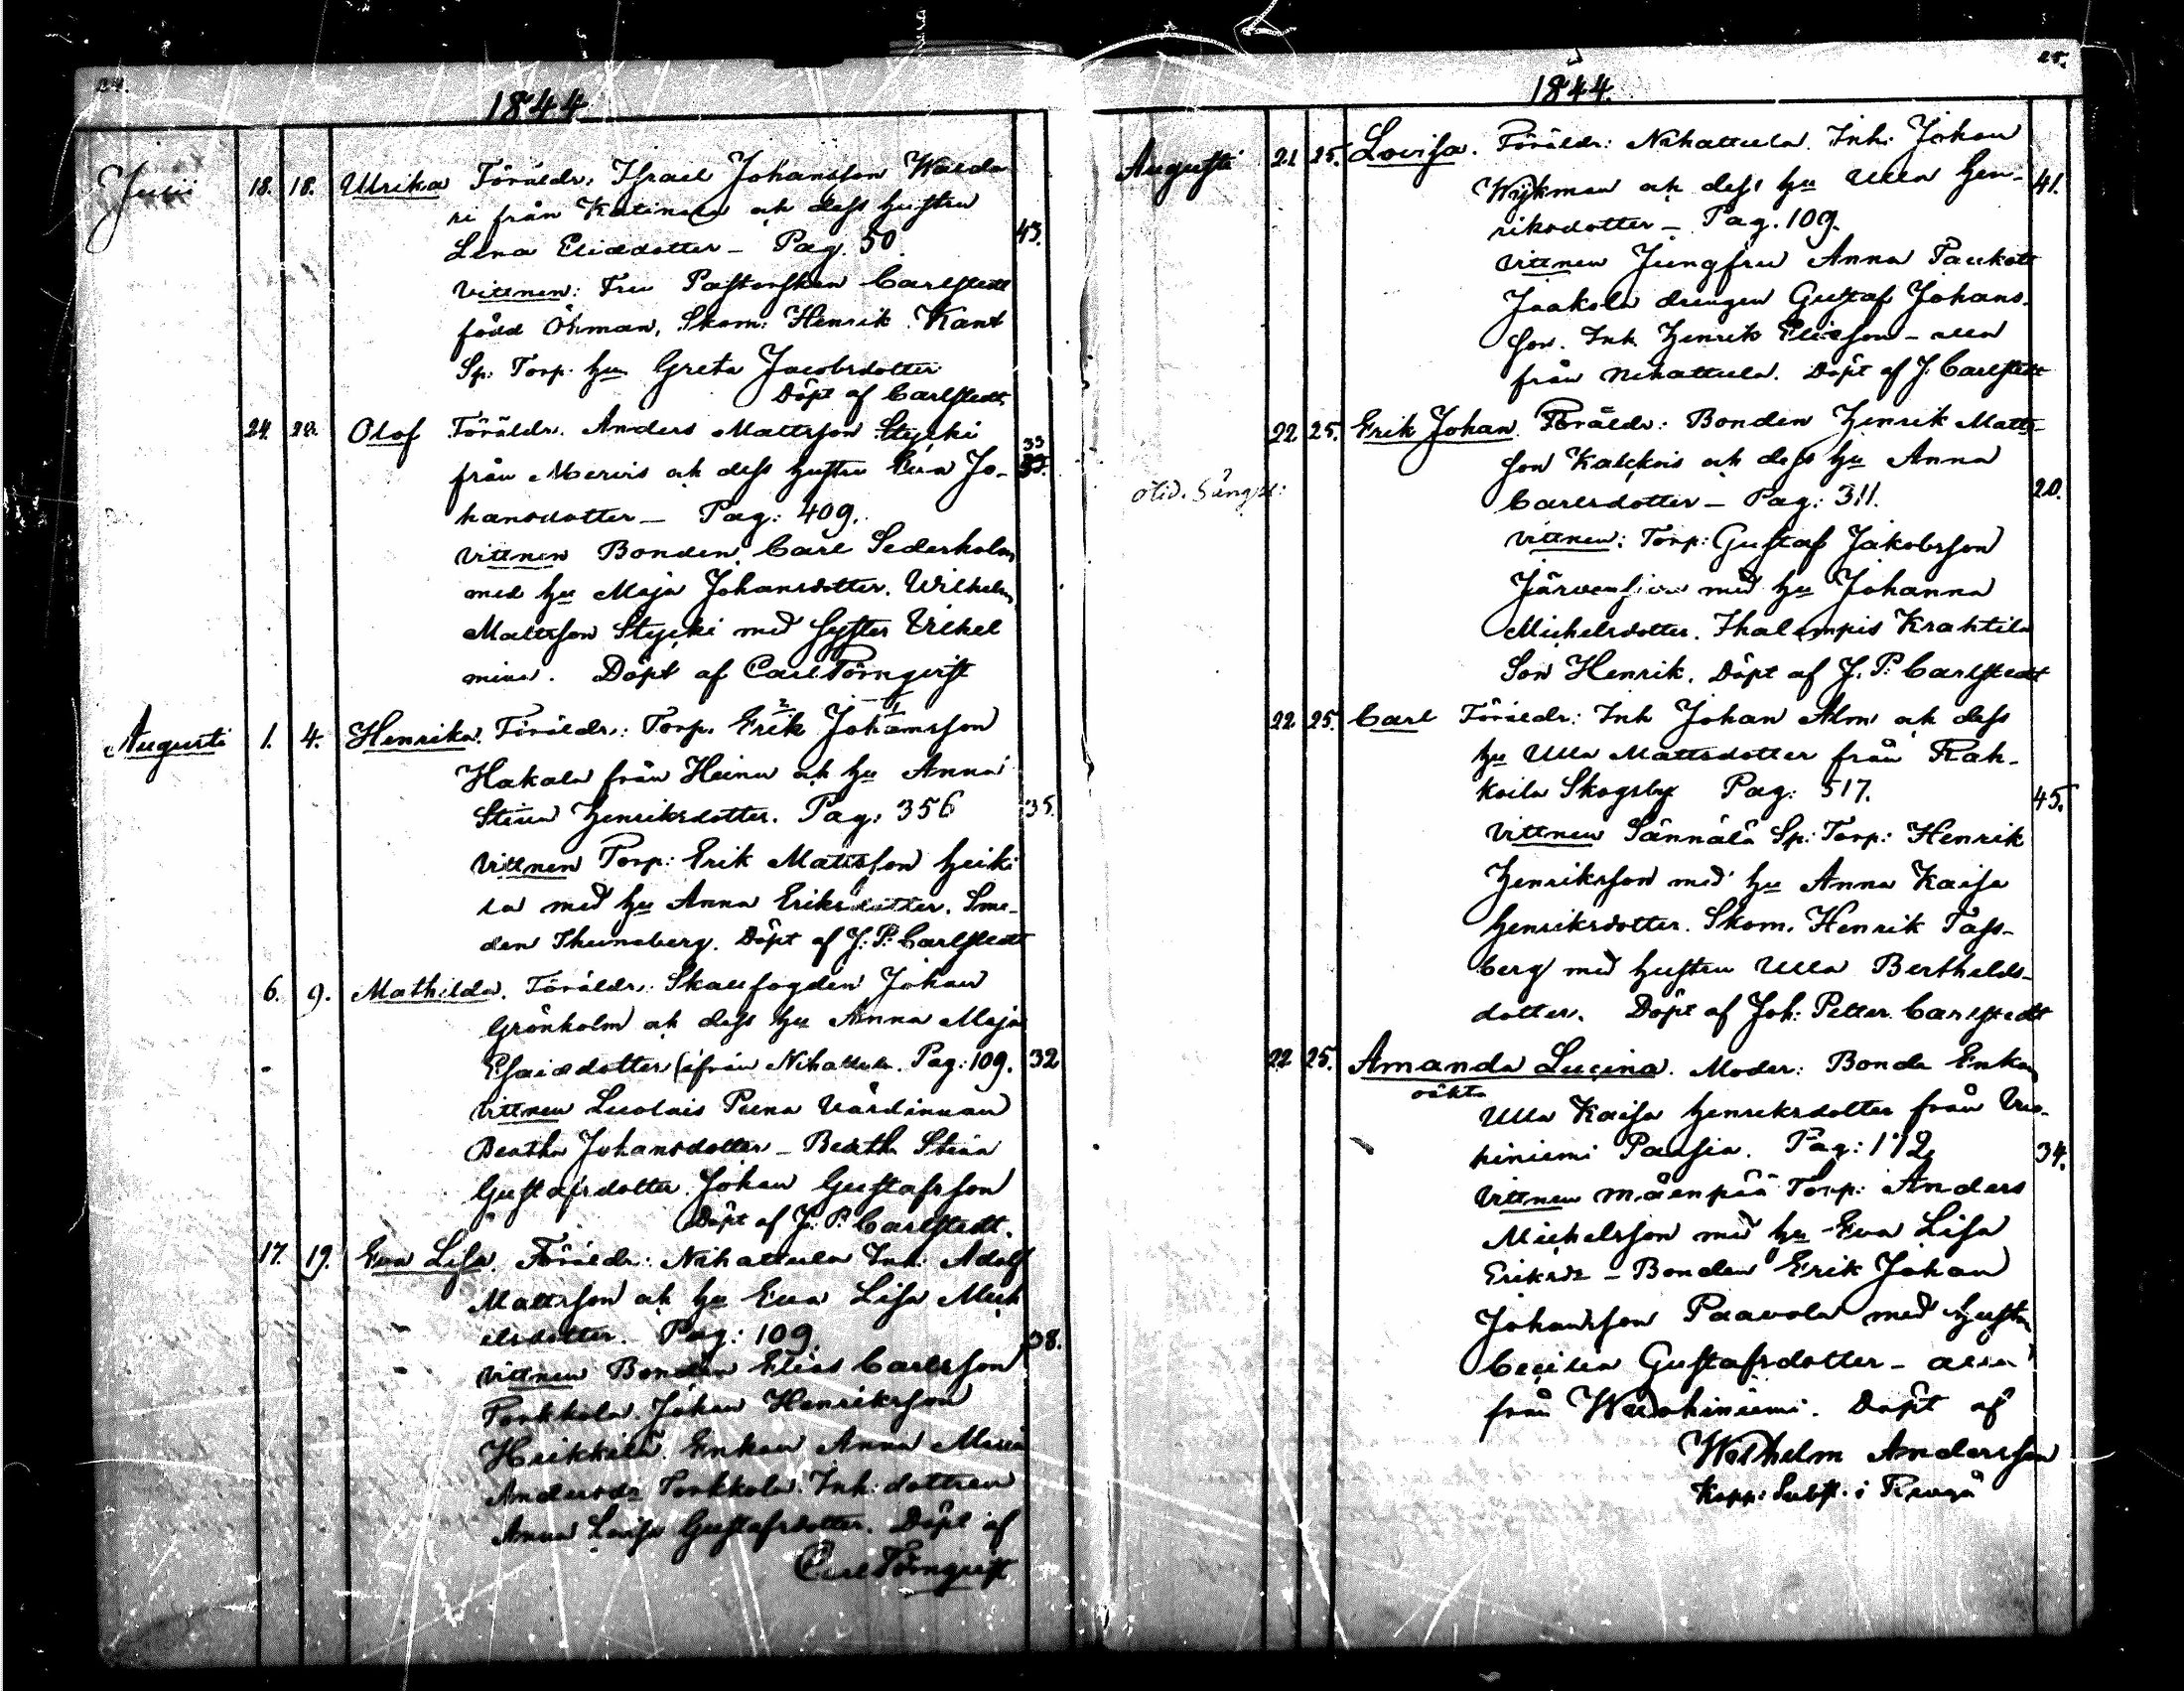 24.
1844
Julii 18. 18. Ulrika Föräldr. Israel Johansson Walda
ri från Katinala och dess hustru
Lena Eliædotter – Pag. 50. 43.
Vittnen: Fru Pastorskan Carlstedt
född Öhman, Skom: Henrik Kant
Sp: Torp. hu Greta Jacobsdotter
Döpt af Carlstedt.
24. Olof Föräldr. Anders Mattsson Stycki
från Mervis och dess hustru Eva Jo- 33
hansdotter – Pag: 409.
Vittnen Bonden Carl Sederholm
med hu Maja Johansdotter. Wilhelm
Mattsson Stycki med Syster Vilhel
mina. Döpt af Carl Törnqvist
Augusti 1. 4. Henrika. Föräldr.: Torp. Erik Johansson
Hakala från Heinu och hu Anna
Stina Henriksdotter. Pag: 356 35.
Vittnen Torp: Erik Mattsson Heiki
la med hu Anna Eriksdotter. Sme-
den Thunberg. Döpt af J: P: Carlstedt
6. 9. Mathilda. Föräldr. Skallfogden Johan
Grönholm och dess hu Anna Maja
Esaiædotter ifrån Nihattula. Pag: 109. 32
Vittnen Luolais Värdinnan
Beatha Johansdotter – Beatha Stina
Gustafsdotter. Johan Gustafsson
Döpt af J: P: Carlstedt.
17. 19. Eva Lisa. Föräldr: Nihattula Inh. Adolf
Mattsson och hu Eva Lisa Mich
elsdotter. Pag: 109 38.
Vittnen Bonden Elias Carlsson
Torkkola. Johan Henriksson
Heikkilä. Enkan Anna Maria
Andersdr Torkkola. Inh: dottren
Anna Lovisa Gustafsdotter. Döpt af
Carl Törnqvist
25.
1844.
Augusti 21 25. Lovisa. Föräldr: Nihattula. Inh. Johan
Wykman och dess hu Ulla Hen- 41.
riksdotter – Pag. 109.
Vittnen Jungfru Anna
Jaakola drengen Gustaf Johans-
son. Inh. Henrik Eliasson – alla
från Nihattula. Döpt af J. Carlstedt
22 25. Erik Johan. Föräldr: Bonden Henrik Matts-
son och dess hu Anna
Carlsdotter – Pag: 311. 20.
Vittnen: Torp: Gustaf Jakobsson
med hu Johanna
Michelsdotter. Ihalempis Krahtila
Son Henrik. Döpt af J. P: Carlstedt
22 25. Carl Föräldr: Inh Johan Alm och dess
hu Ulla Mattsdotter från Rah-
koila Skogsby Pag: 517. 45.
Vittnen Sännälä Sp: Torp: Henrik
Henriksson med hu Anna Kaisa
Henriksdotter. Skom. Henrik Tass-
berg med hustru Ulla Berthelds-
dotter. Döpt af Joh: Petter Carlstedt
22 25. Amanda Lucina. Moder: Bonde Enkan
oäkta
Ulla Kaisa Henriksdotter från Vuo-
hiniemi Pag: 172 34.
Vittnen Mäenpää Torp: Anders
Michelsson med hu Eva Lisa
Eriksdr – Bonden Erik Johan
Johansson Paavola med hustru
Cecilia Gustafsdotter – alla
från Wuohiniemi. Döpt af
Wilhelm Andersson
Kapp: Subst: i Rengå